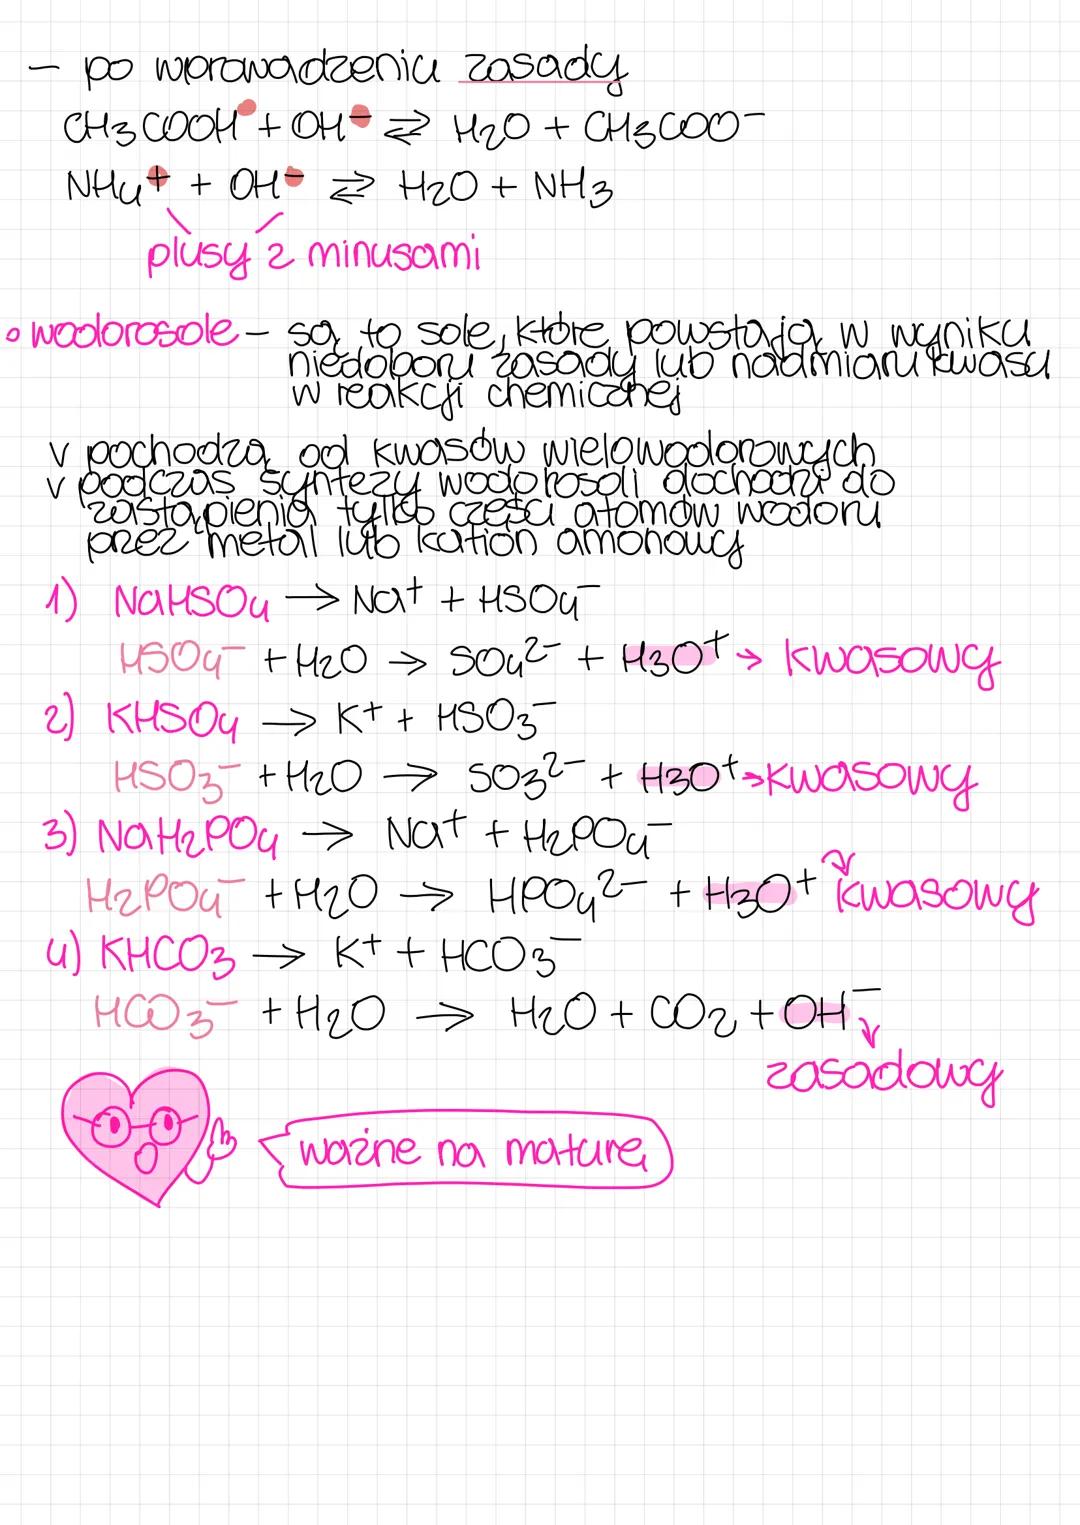 - po wprowadzeniu zasady
CH3COOH + OH⁻ ⇄ H2O + CH3COO⁻
NH4⁺ + OH⁻ ⇄ H2O + NH3
plusy z minusami
• wodorosole - są to sole, które powstają w wyniku
niedoboru zasady lub nadmiaru kwasu
w reakcji chemicznej
v pochodzą od kwasów wielowodorowych
v podczas syntezy wodorosoli dochodzi do
zastąpienia tylko części atomów wodoru
przez metal lub kation amonowy
1) NaHSO4 → Na⁺ + HSO4⁻
HSO4⁻ + H2O → SO4²⁻ + H3O⁺ → kwasowy
2) KHSO4 → K⁺ + HSO3⁻
HSO3⁻ + H2O → SO3²⁻ + H3O⁺ → kwasowy
3) NaH2PO4 → Na⁺ + H2PO4⁻
H2PO4⁻ + H2O → HPO4²⁻ + H3O⁺ kwasowy
4) KHCO3 → K⁺ + HCO3⁻
HCO3⁻ + H2O → H2O + CO2 + OH⁻
zasadowy
ważne na maturę